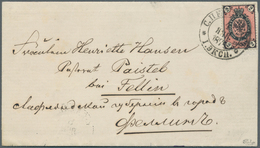 Fräulein Henriette Hansen
Pastorat Paistel
bei Fellin
Лифляндской губернии въ городѣ
Феллинъ.